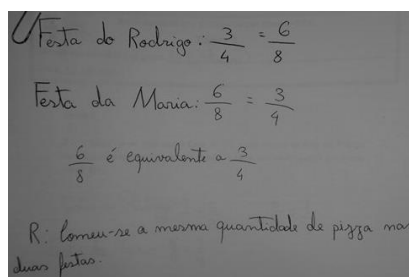 Festa do Rodrigo: 3/4 = 6/8
Festa da Maria: 6/8 = 3/4
6/8 é equivalente a 3/4
R: Comeu-se a mesma quantidade de pizza nas
duas festas.